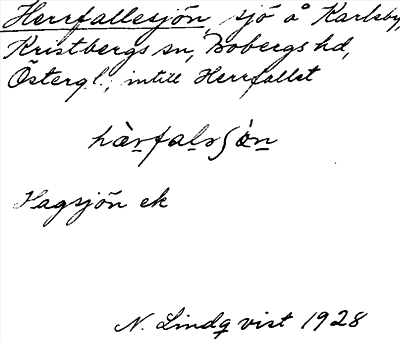 Herrfallesjön, sjö å Karlsby,
Kristbergs sn, Bobergs hd,
Österg.l., intill Herrfallet
hàrfalsʃòn
Hagsjön ek
N. Lindqvist 1928